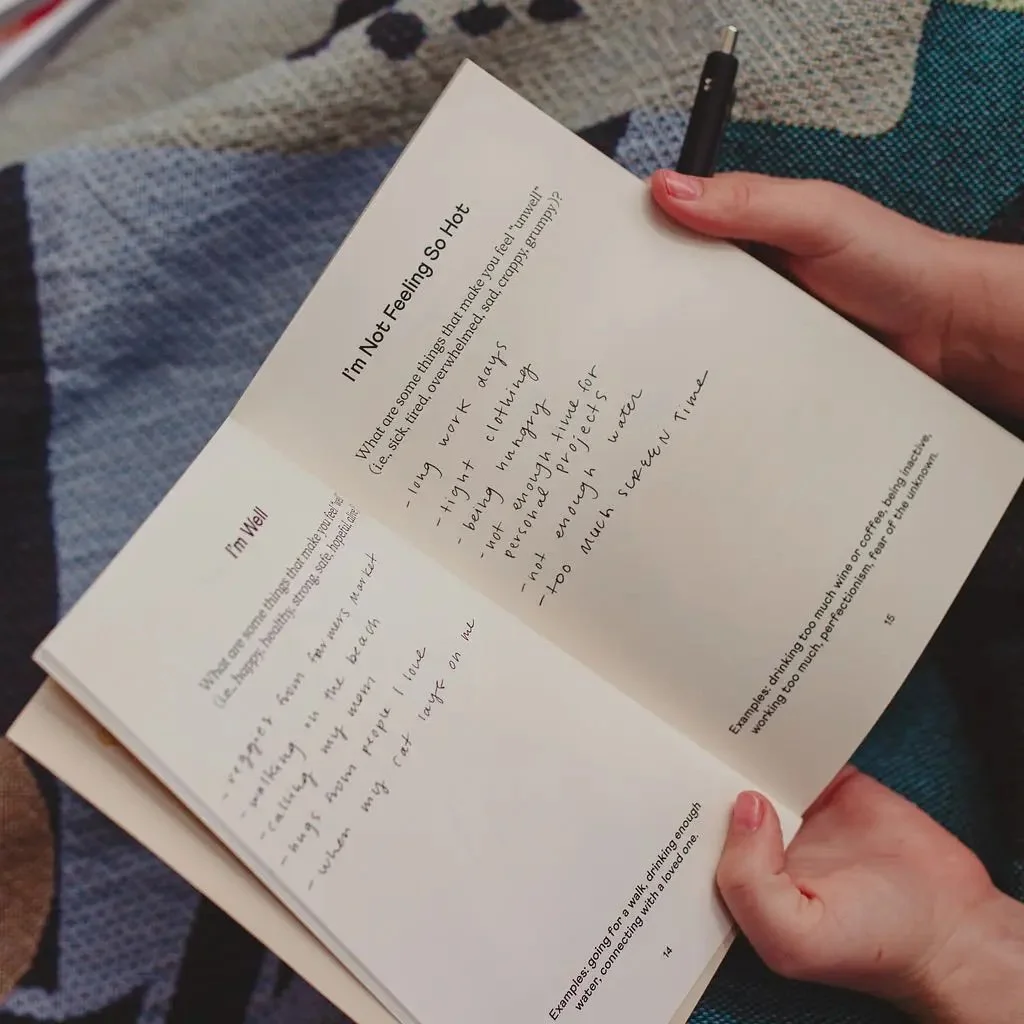 I'm Well
What are some things that make you feel "well"
(i.e., happy, healthy, strong, safe, hopeful, alive)?
- veggies from farmers market
- walking on the beach
- calling my mom
- hugs from people I love
- when my cat lays on me
Examples: going for a walk, drinking enough
water, connecting with a loved one.
14
I'm Not Feeling So Hot
What are some things that make you feel "unwell"
(i.e., sick, tired, overwhelmed, sad, crappy, grumpy)?
- long work days
- tight clothing
- being hungry
- not enough time for
personal projects
- not enough water
- too much SCREEN Time
Examples: drinking too much wine or coffee, being inactive,
working too much, perfectionism, fear of the unknown.
15